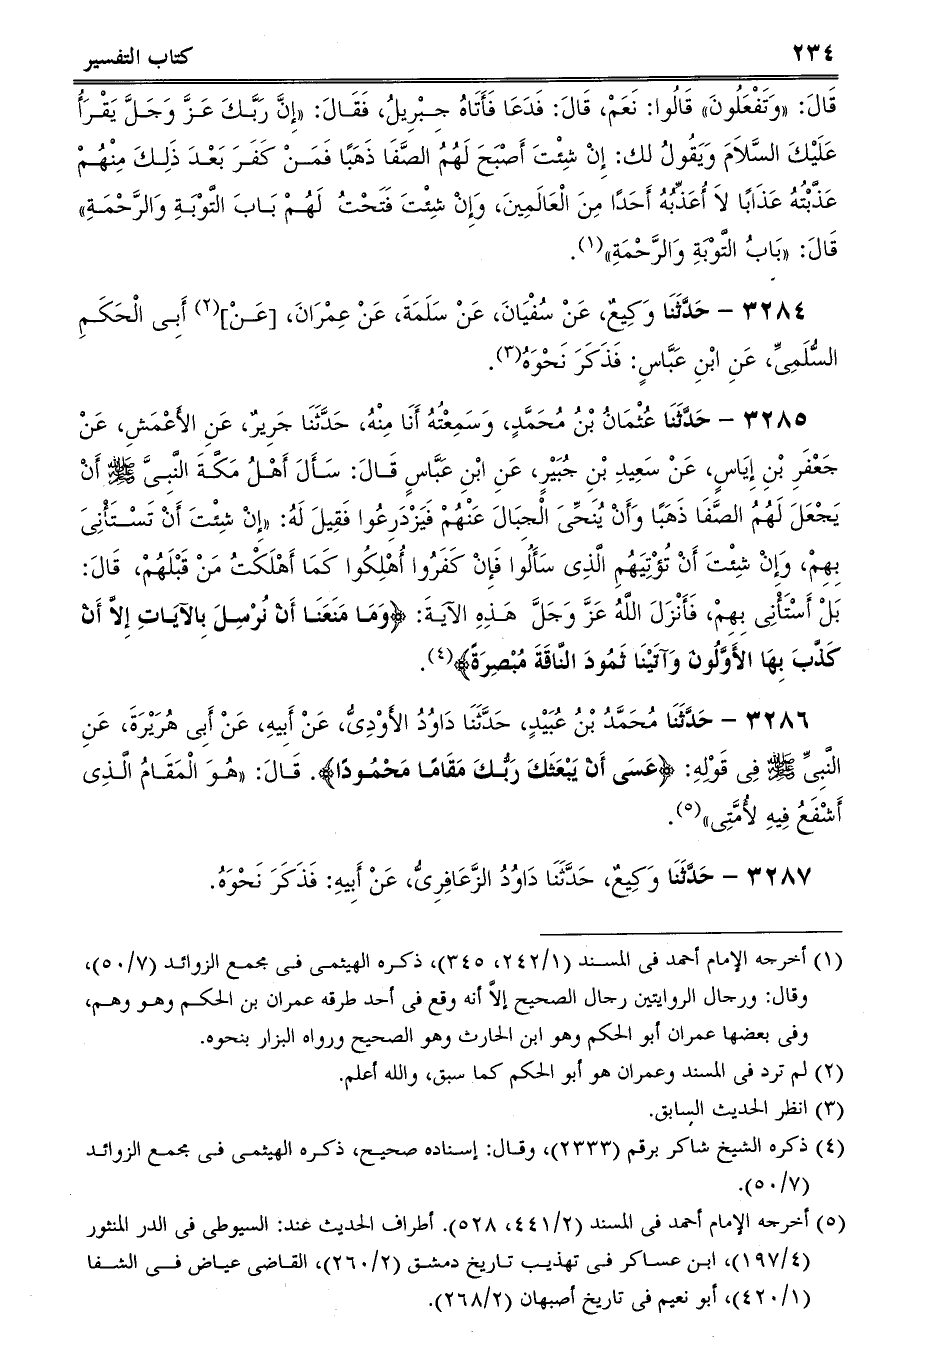 ٢٣٤ كتاب التفسير
قَالَ: «وَتَفْعَلُونَ» قَالُوا: نَعَمْ، قَالَ: فَدَعَا فَأَتَاهُ جِبْرِيلُ، فَقَالَ: «إِنَّ رَبَّكَ عَزَّ وَجَلَّ يَقْرَأُ
عَلَيْكَ السَّلاَمَ وَيَقُولُ لك: إِنْ شِئْتَ أَصْبَحَ لَهُمُ الصَّفَا ذَهَبًا فَمَنْ كَفَرَ بَعْدَ ذَلِكَ مِنْهُمْ
عَذَّبْتُهُ عَذَابًا لاَ أُعَذِّبُهُ أَحَدًا مِنَ الْعَالَمِينَ، وَإِنْ شِئْتَ فَتَحْتُ لَهُمْ بَابَ التَّوْبَةِ وَالرَّحْمَةِ»
قَالَ: «بَابُ التَّوْبَةِ وَالرَّحْمَةِ»(١).
٣٢٨٤ - حَدَّثَنَا وَكِيعٌ، عَنْ سُفْيَانَ، عَنْ سَلَمَةَ، عَنْ عِمْرَانَ، [عَنْ](٢) أَبِى الْحَكَمِ
السُّلَمِىِّ، عَنِ ابْنِ عَبَّاسٍ: فَذَكَرَ نَحْوَهُ(٣).
٣٢٨٥ - حَدَّثَنَا عُثْمَانُ بْنُ مُحَمَّدٍ، وَسَمِعْتُهُ أَنَا مِنْهُ، حَدَّثَنَا جَرِيرٌ، عَنِ الأَعْمَشِ، عَنْ
جَعْفَرِ بْنِ إِيَاسٍ، عَنْ سَعِيدِ بْنِ جُبَيْرٍ، عَنِ ابْنِ عَبَّاسٍ قَالَ: سَأَلَ أَهْلُ مَكَّةَ النَّبِىَّ ﷺ أَنْ
يَجْعَلَ لَهُمُ الصَّفَا ذَهَبًا وَأَنْ يُنَحِّىَ الْجِبَالَ عَنْهُمْ فَيَزْدَرِعُوا فَقِيلَ لَهُ: «إِنْ شِئْتَ أَنْ تَسْتَأْنِىَ
بِهِمْ، وَإِنْ شِئْتَ أَنْ تُؤْتِيَهُمِ الَّذِى سَأَلُوا فَإِنْ كَفَرُوا أُهْلِكُوا كَمَا أَهْلَكْتُ مَنْ قَبْلَهُمْ، قَالَ:
بَلْ أَسْتَأْنِى بِهِمْ، فَأَنْزَلَ اللَّهُ عَزَّ وَجَلَّ هَذِهِ الآيَةَ: ﴿وَمَا مَنَعَنَا أَنْ نُرْسِلَ بِالآيَاتِ إِلاَّ أَنْ
كَذَّبَ بِهَا الأَوَّلُونَ وَآتَيْنَا ثَمُودَ النَّاقَةَ مُبْصِرَةً﴾(٤).
٣٢٨٦ - حَدَّثَنَا مُحَمَّدُ بْنُ عُبَيْدٍ، حَدَّثَنَا دَاوُدُ الأَوْدِىُّ، عَنْ أَبِيهِ، عَنْ أَبِى هُرَيْرَةَ، عَنِ
النَّبِىِّ ﷺ فِى قَوْلِهِ: ﴿عَسَى أَنْ يَبْعَثَكَ رَبُّكَ مَقَامًا مَحْمُودًا﴾. قَالَ: «هُوَ الْمَقَامُ الَّذِى
أَشْفَعُ فِيهِ لأُمَّتِى»(٥).
٣٢٨٧ - حَدَّثَنَا وَكِيعٌ، حَدَّثَنَا دَاوُدُ الزَّعَافِرِىُّ، عَنْ أَبِيهِ: فَذَكَرَ نَحْوَهُ.
(١) أخرجه الإمام أحمد فى المسند (٢٤٢/١، ٣٤٥)، ذكره الهيثمى فى مجمع الزوائد (٥٠/٧)،
وقال: ورجال الروايتين رجال الصحيح إلاَّ أنه وقع فى أحد طرقه عمران بن الحكم وهو وهم،
وفى بعضها عمران أبو الحكم وهو ابن الحارث وهو الصحيح ورواه البزار بنحوه.
(٢) لم ترد فى المسند وعمران هو أبو الحكم كما سبق، والله أعلم.
(٣) انظر الحديث السابق.
(٤) ذكره الشيخ شاكر برقم (٢٣٣٣)، وقال: إسناده صحيح، ذكره الهيثمى فى مجمع الزوائد
(٥٠/٧).
(٥) أخرجه الإمام أحمد فى المسند (٤٤١/٢، ٥٢٨). أطراف الحديث عند: السيوطى فى الدر المنثور
(١٩٧/٤)، ابن عساكر فى تهذيب تاريخ دمشق (٢٦٠/٢)، القاضى عياض فى الشفا
(٤٢٠/١)، أبو نعيم فى تاريخ أصبهان (٢٦٨/٢).